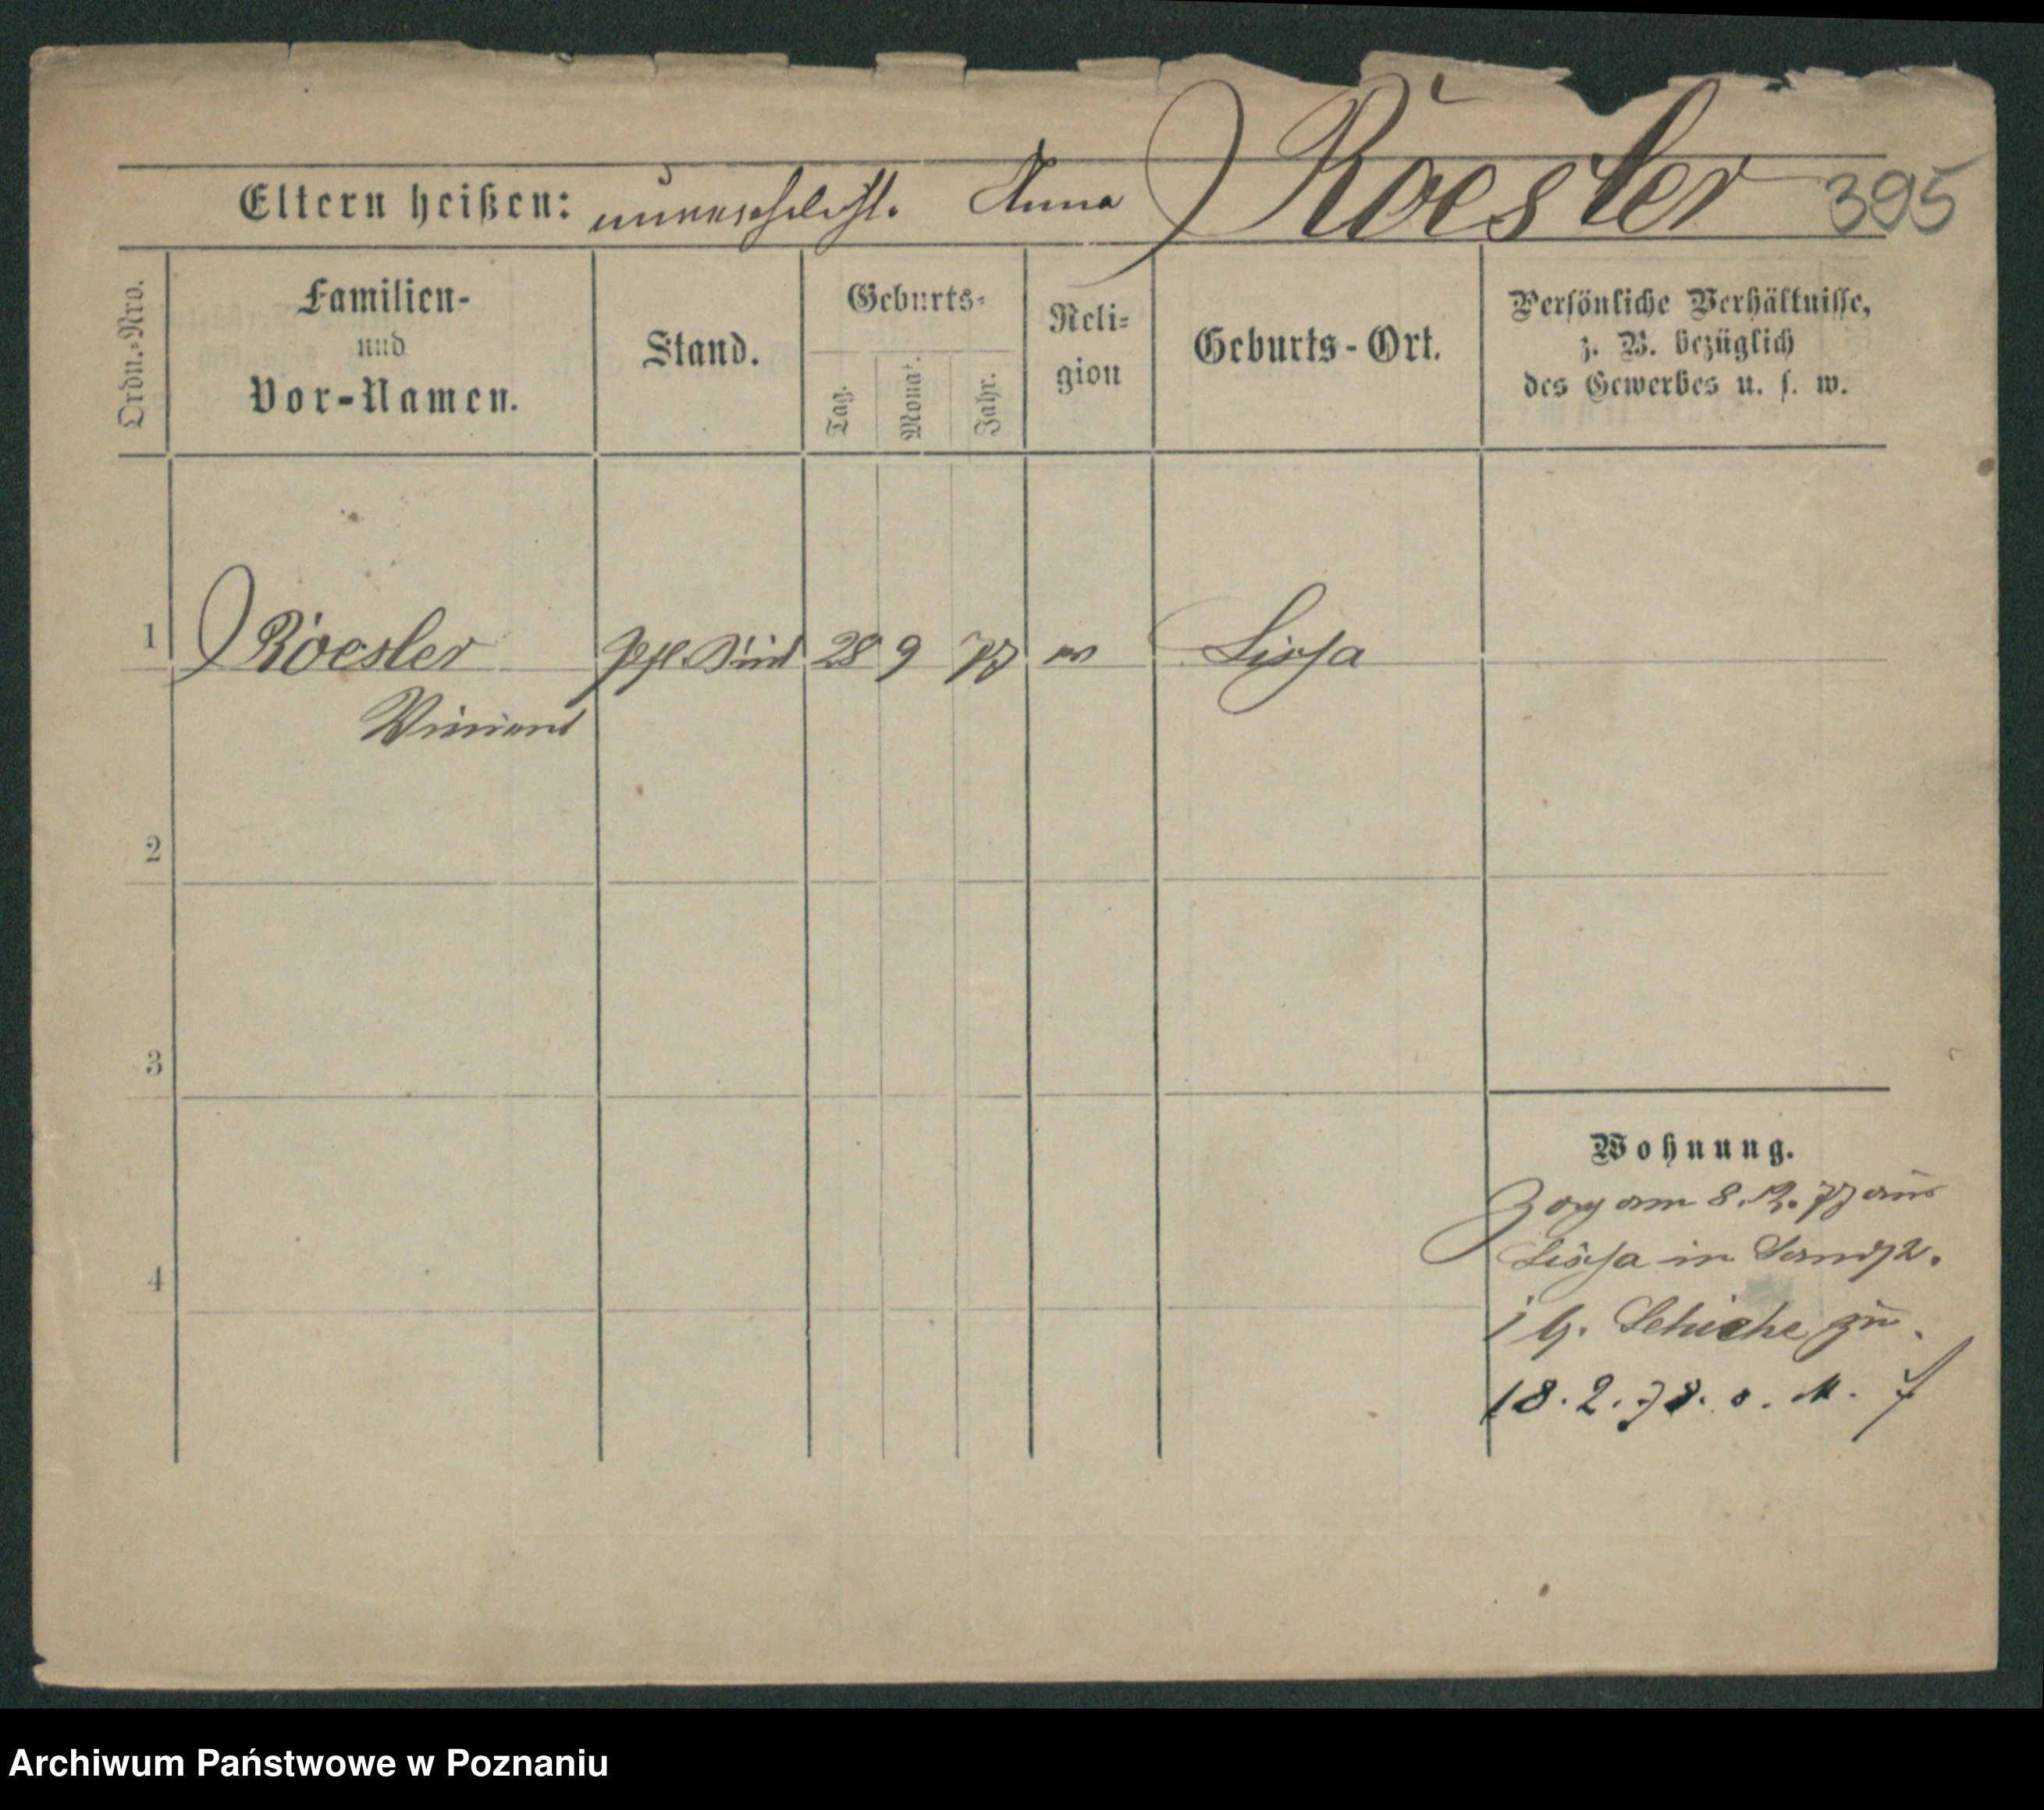 Röesler 395
Eltern heißen: unverehelicht. Anna
Ordn.-Nro.
Familien-
und
Vor-Namen.
Stand.
Geburts-
Tag.
Monat.
Jahr.
Reli-
gion
Geburts-Ort.
Persönliche Verhältnisse,
z. B. bezüglich
des Gewerbes u. s. w.
1 Röesler 28 9 77 Lissa
2
3
4
Wohnung.
Zog am 8. 12. 77 aus
Lissa in
zu.
18. 2. 78. o. M.
Archiwum Państwowe w Poznaniu